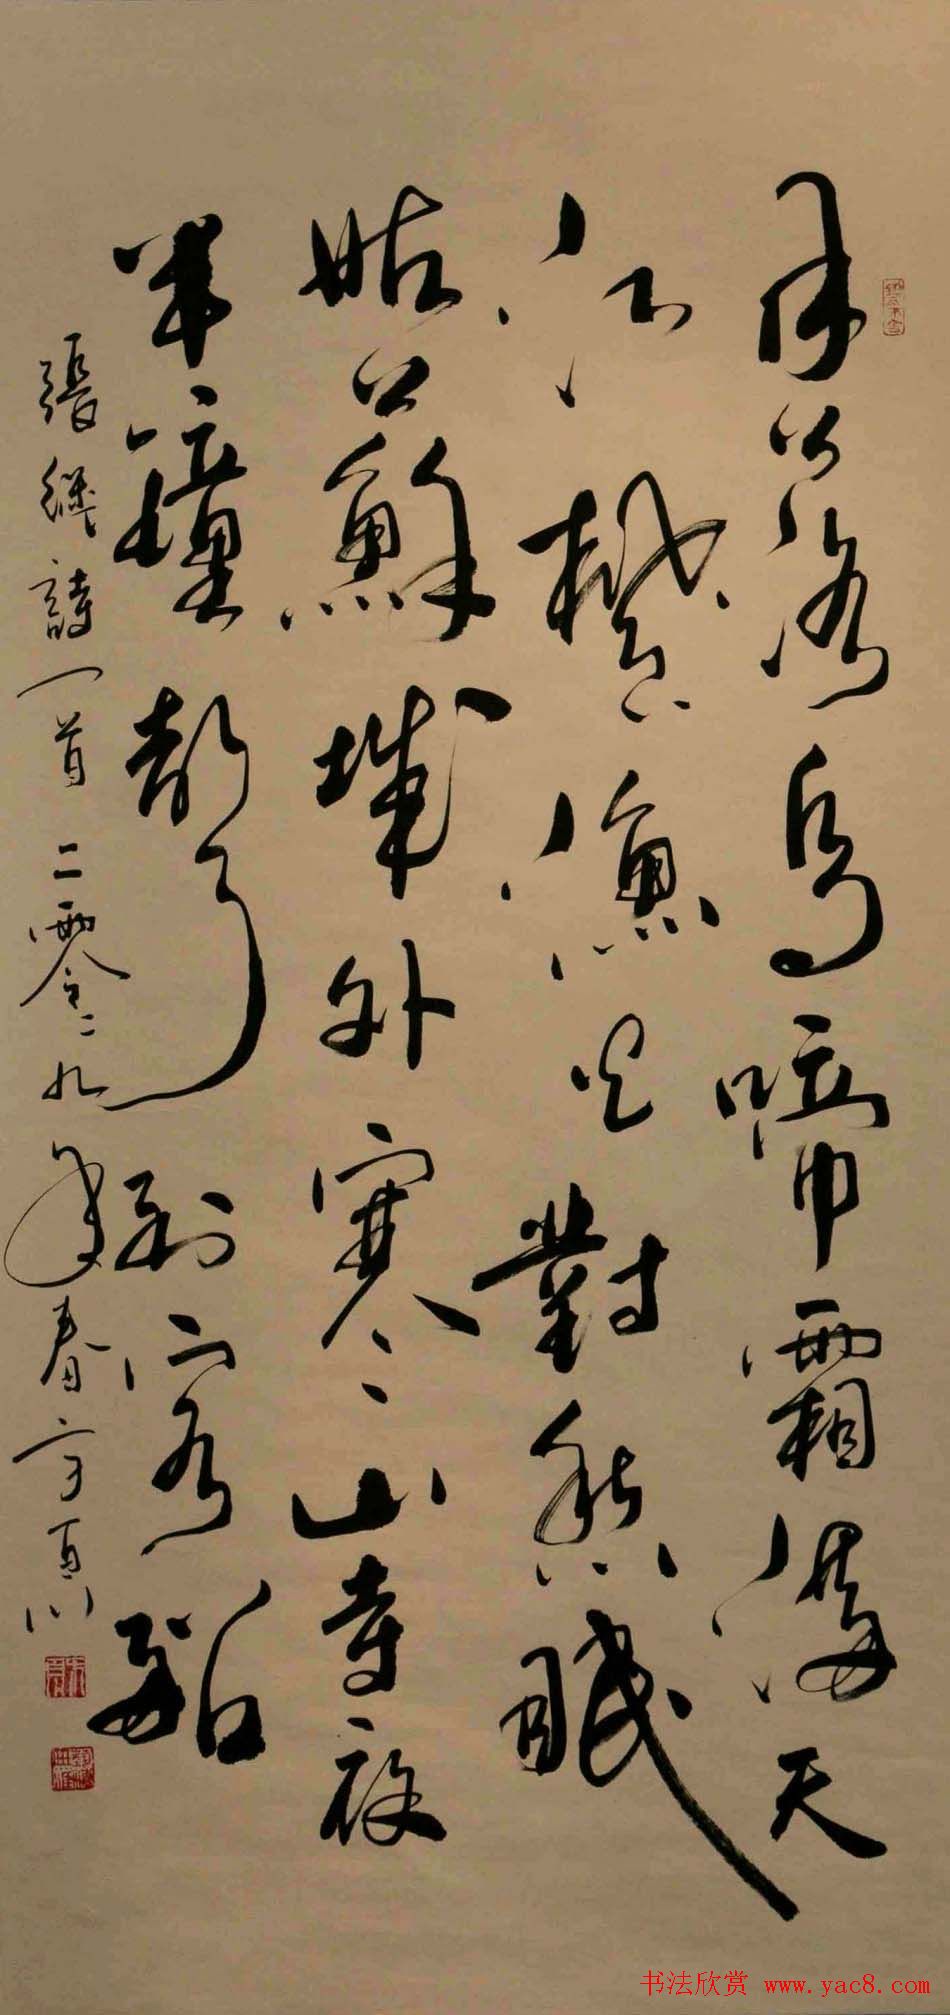 月落烏啼霜滿天
江楓漁火對愁眠
姑蘇城外寒山寺夜
半鐘聲到客船
張繼詩一首 二零〻九年春 百川
书法欣赏 www.yac8.com